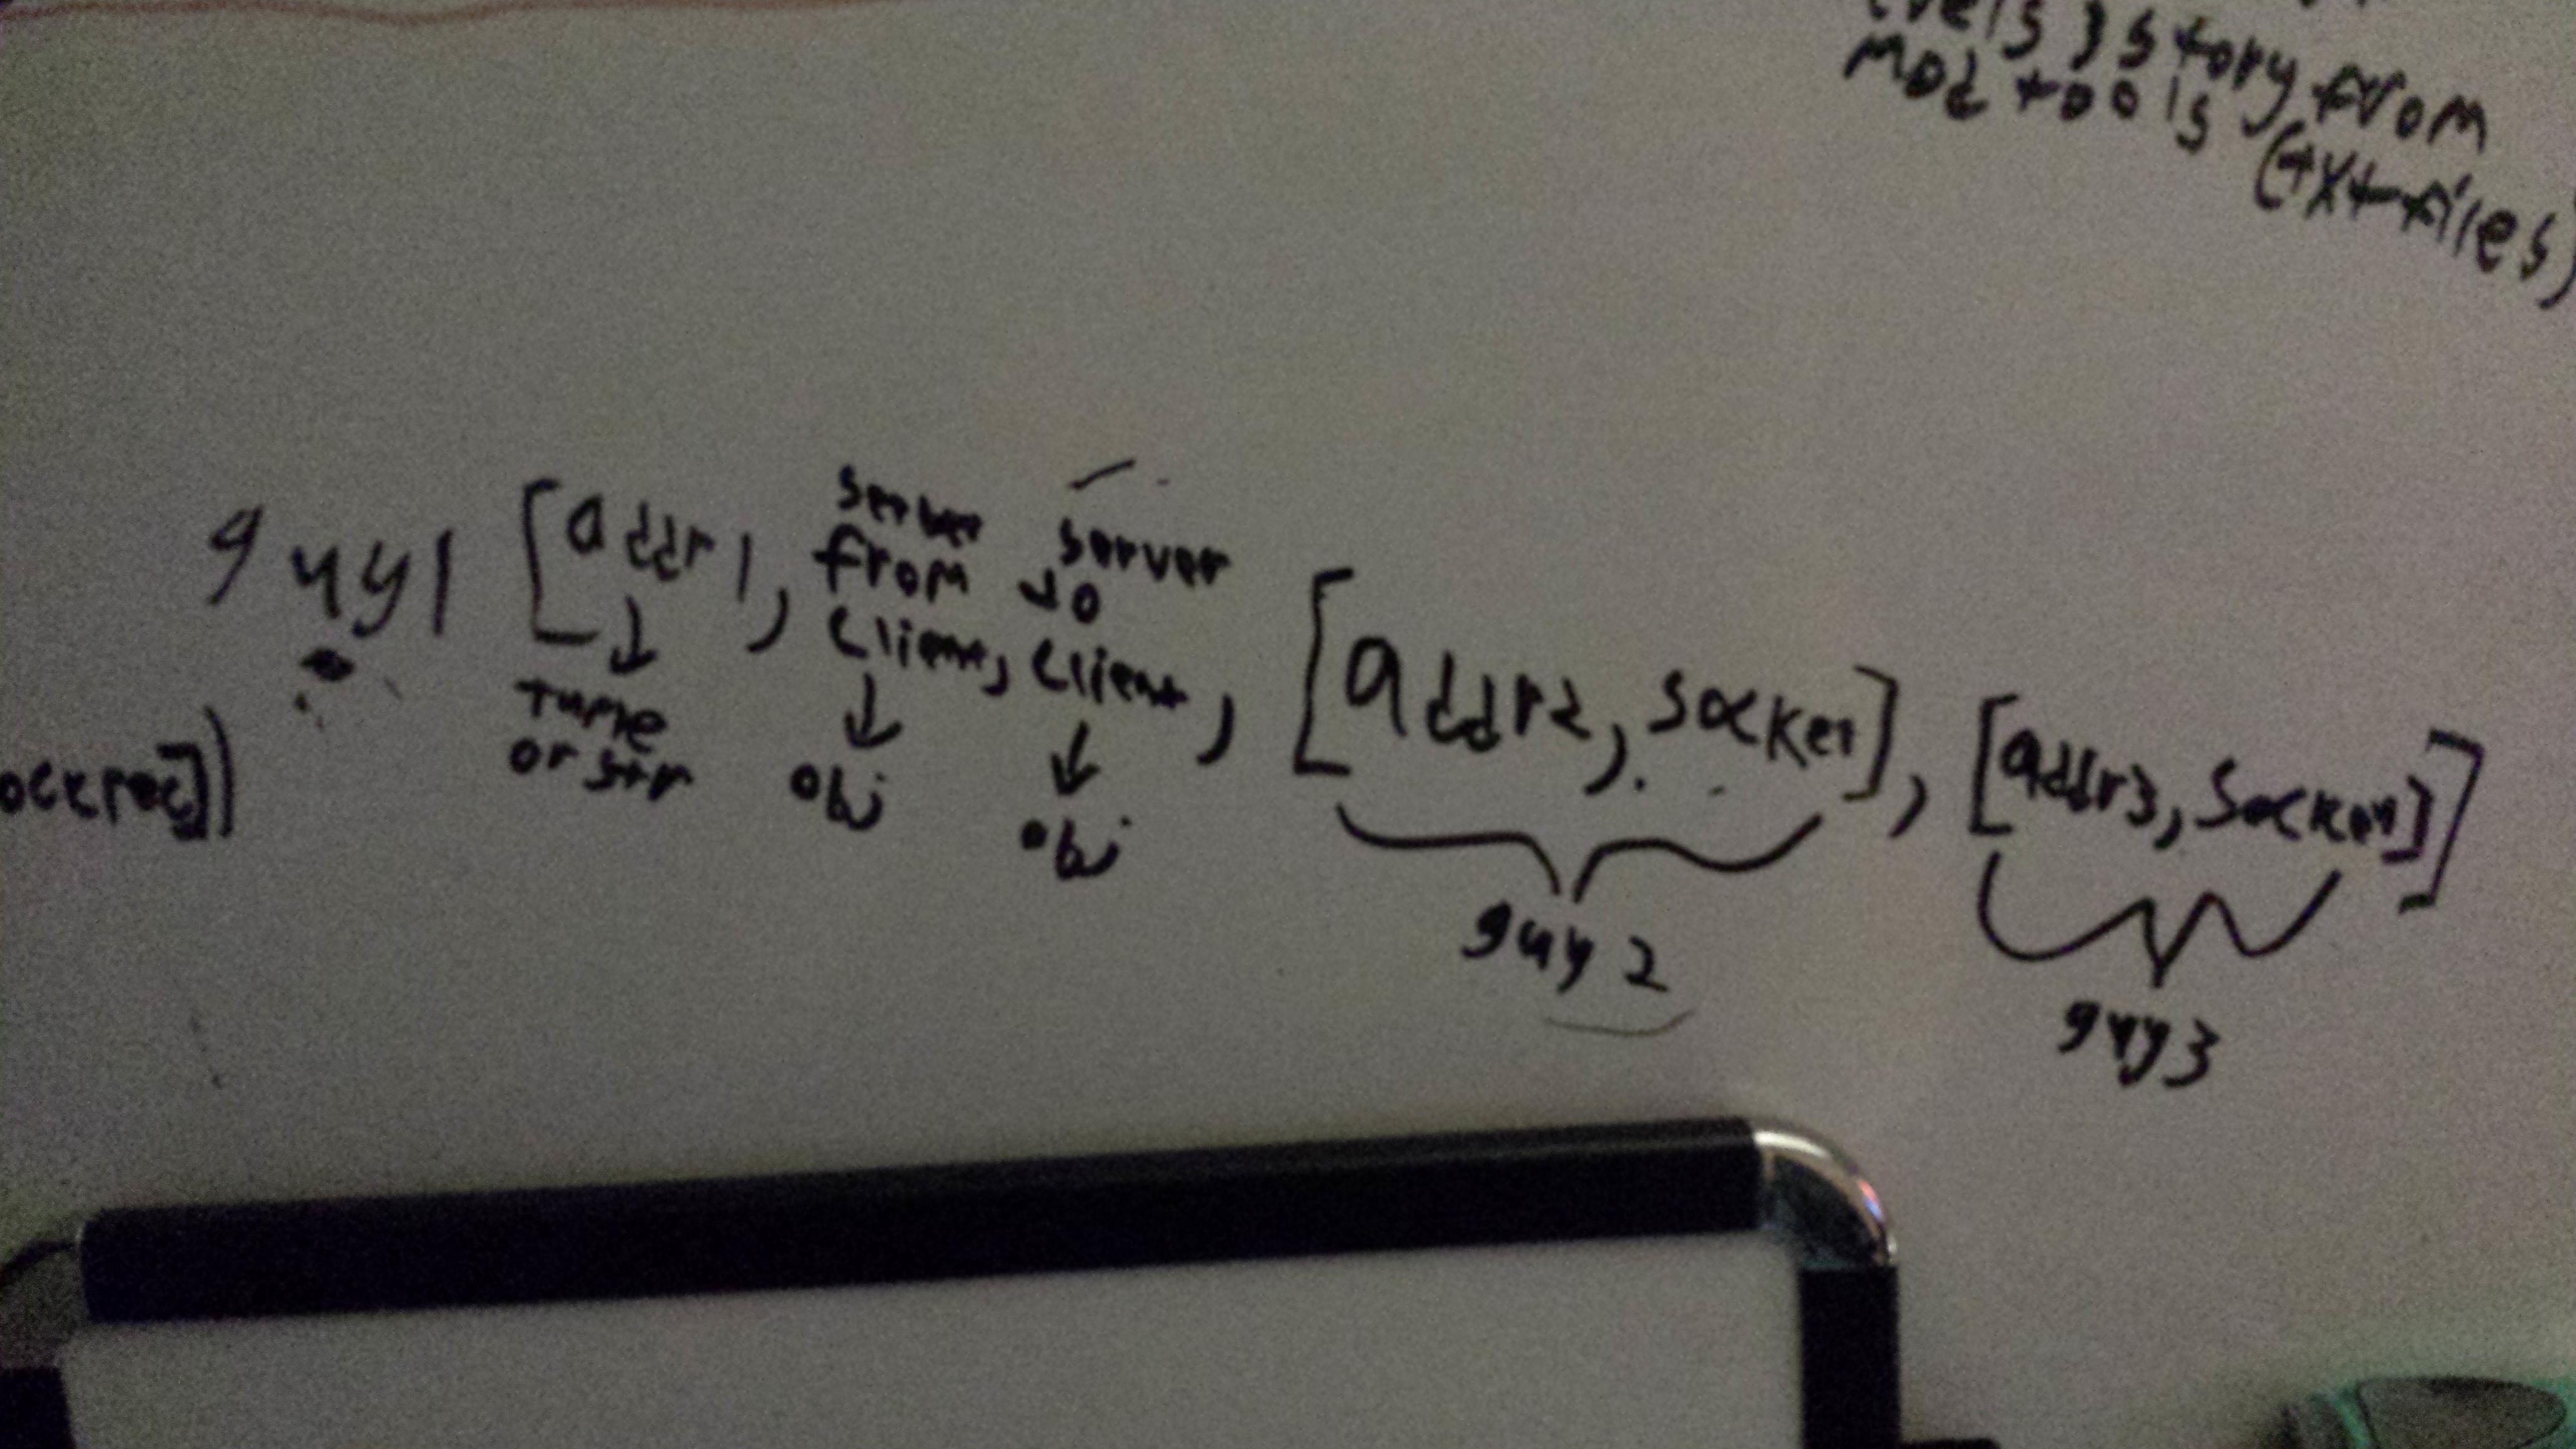 story from
mod tools
(txt files)
guy1 [addr1, server from client, server to client, [addr2, socket], [addr3, socket]]
or str
obj
obj
guy 2
guy3